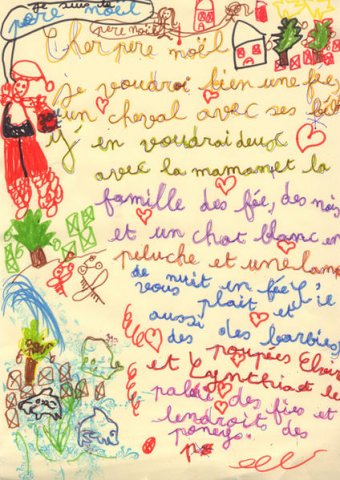 je suis le
père noël
père noël
cher père noël
je voudrai bien une fée
un cheval avec ses
j'en voudrai deux
avec la maman et la
famille des fée, des
et un chat blanc en
peluche et une
de nuit en fée s'il
vous plait et je
aussi des des barbies
et poupées
et le
palais des fées et
lendroit des
poneys.